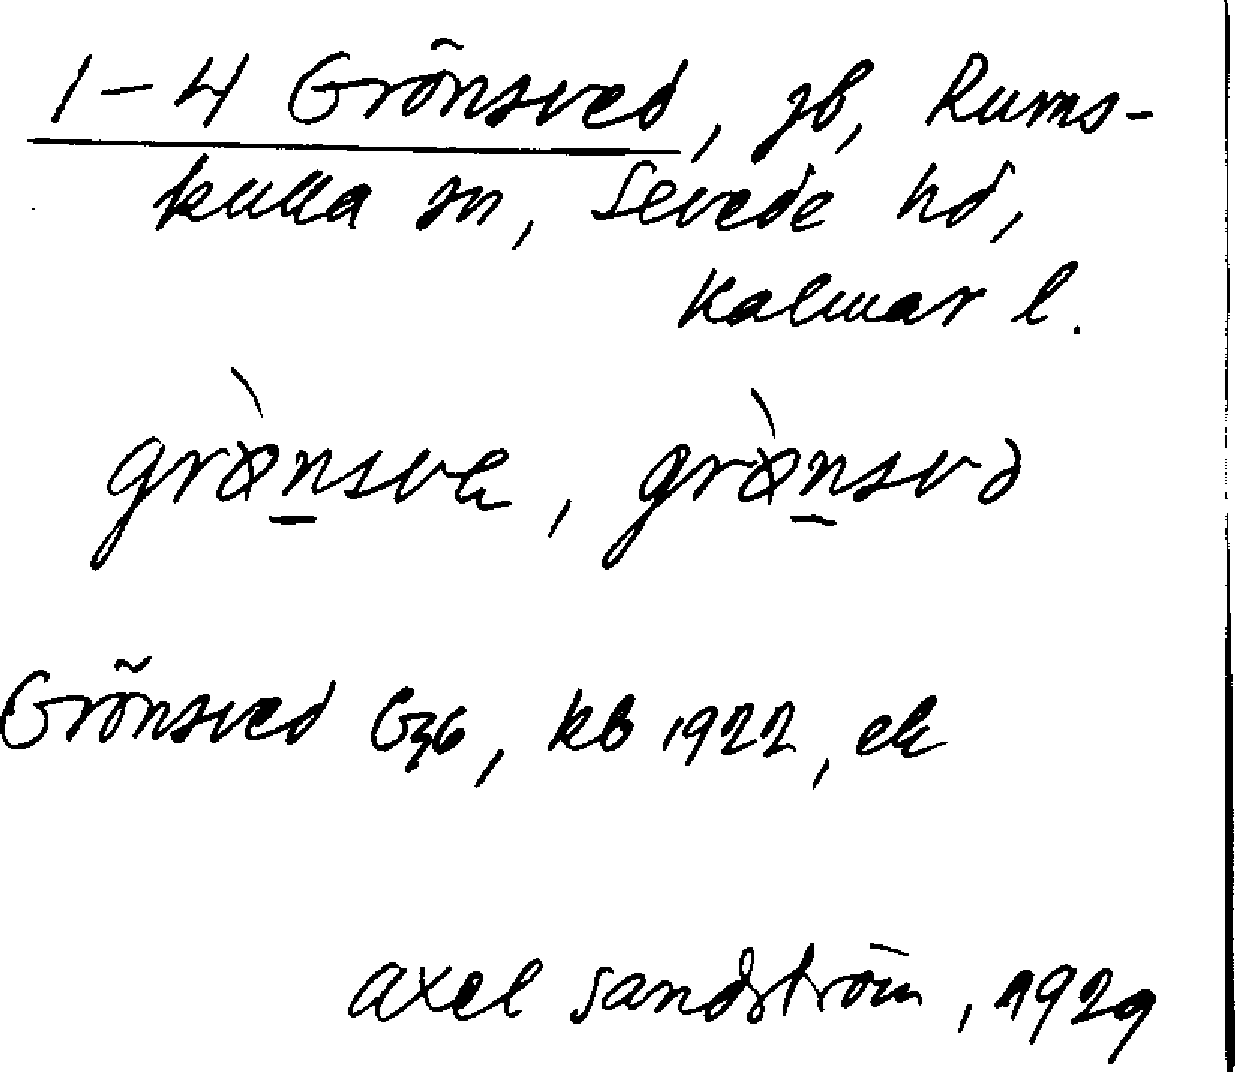 1-4 Grönsved, jb, Rums-
kulla sn, Sevede hd,
Kalmar l.
grø̀nsve, grø̀nsvə
Grönsved Gz6, kb 1922, ek
Axel Sandström, 1929